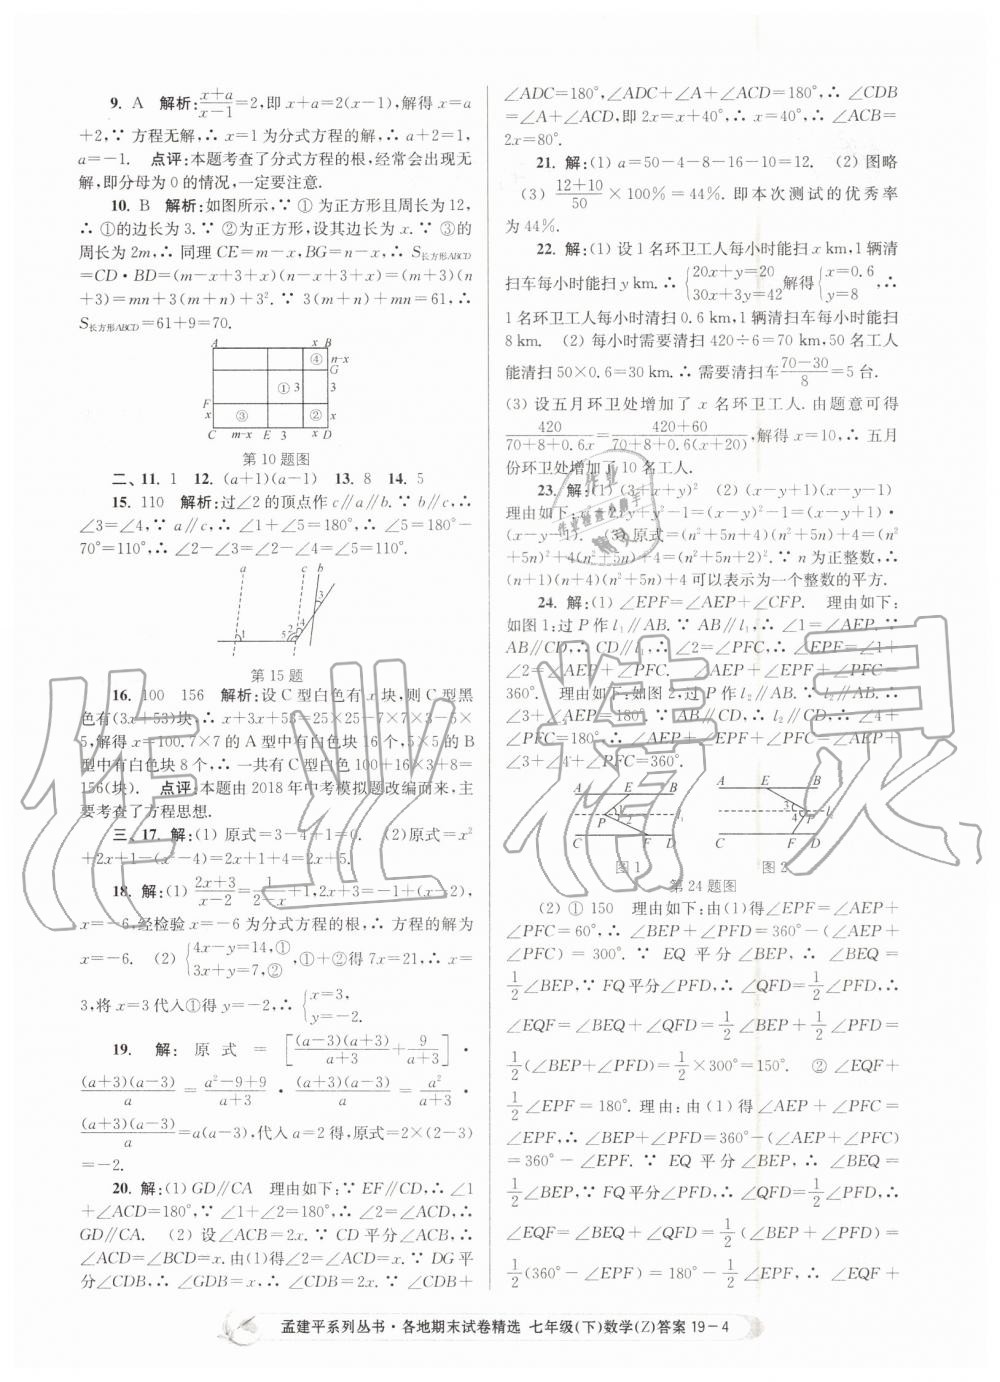 9. A 解析:(x+a)/(x-1)=2,即 x+a=2(x-1),解得 x=a
+2,∵ 方程无解,∴ x=1 为分式方程的解,∴ a+2=1,
a=-1. 点评:本题考查了分式方程的根,经常会出现无
解,即分母为 0 的情况,一定要注意.
10. B 解析:如图所示,∵ ① 为正方形且周长为 12,
∴ ①的边长为 3.∵ ②为正方形,设其边长为 x.∵ ③的
周长为 2m,∴ 同理 CE=m-x,BG=n-x,∴ S长方形ABCD
=CD·BD=(m-x+3+x)(n-x+3+x)=(m+3)(n
+3)=mn+3(m+n)+3². ∵ 3(m+n)+mn=61,∴
S长方形ABCD=61+9=70.
A x B
④ n-x
G
① 3 3
F
x ③ ② x
C m-x E 3 x D
第 10 题图
二、11. 1 12. (a+1)(a-1) 13. 8 14. 5
15. 110 解析:过∠2 的顶点作 c∥a∥b.∵ b∥c,∴
∠3=∠4,∵ a∥c,∴ ∠1+∠5=180°,∴ ∠5=180°-
70°=110°,∴ ∠2-∠3=∠2-∠4=∠5=110°.
a c b
3
1 5 2 4
第 15 题
16. 100 156 解析:设 C 型白色有 x 块,则 C 型黑
色有(3x+53)块,∴ x+3x+53=25×25-7×7×3-5×
5,解得 x=100.7×7 的 A 型中有白色块 16 个,5×5 的 B
型中有白色块 8 个,∴ 一共有 C 型白色 100+16×3+8=
156(块). 点评:本题由 2018 年中考模拟题改编而来,主
要考查了方程思想.
三、17. 解:(1) 原式=3-4+1=0. (2)原式=x²
+2x+1-(x²-4)=2x+1+4=2x+5.
18. 解:(1) (2x+3)/(x-2)=1/(2-x)+1,2x+3=-1+(x-2),
x=-6,经检验 x=-6 为分式方程的根,∴ 方程的解为
x=-6. (2) {4x-y=14,① 3x+y=7,② ,①+②得 7x=21,∴ x=
3,将 x=3 代入①得 y=-2,∴ {x=3, y=-2.
19. 解: 原 式 = [(a-3)(a+3)/(a+3)+9/(a+3)] ·
(a+3)(a-3)/a = (a²-9+9)/(a+3) · (a+3)(a-3)/a = a²/(a+3) ·
(a+3)(a-3)/a=a(a-3),代入 a=2 得,原式=2×(2-3)
=-2.
20. 解:(1) GD∥CA 理由如下:∵ EF∥CD,∴ ∠1
+∠ACD=180°,∵ ∠1+∠2=180°,∴ ∠2=∠ACD,∴
GD∥CA. (2) 设∠ACB=2x.∵ CD 平分∠ACB,∴
∠ACD=∠BCD=x.由(1)得∠2=∠ACD=x.∵ DG 平
分∠CDB,∴ ∠GDB=x,∴ ∠CDB=2x.∵ ∠CDB+
∠ADC=180°,∠ADC+∠A+∠ACD=180°,∴ ∠CDB
=∠A+∠ACD,即 2x=x+40°,∴ x=40°,∴ ∠ACB=
2x=80°.
21. 解:(1) a=50-4-8-16-10=12. (2) 图略
(3) (12+10)/50×100%=44%. 即本次测试的优秀率
为 44%.
22. 解:(1) 设 1 名环卫工人每小时能扫 x km,1 辆清
扫车每小时能扫 y km.∴ {20x+y=20 30x+3y=42 解得{x=0.6 y=8 ,∴
1 名环卫工人每小时清扫 0.6 km,1 辆清扫车每小时能扫
8 km. (2) 每小时需要清扫 420÷6=70 km,50 名工人
能清扫 50×0.6=30 km.∴ 需要清扫车(70-30)/8=5 台.
(3) 设五月环卫处增加了 x 名环卫工人.由题意可得
420/(70+8+0.6x)=(420+60)/(70+8+0.6(x+20)),解得 x=10,∴ 五月
份环卫处增加了 10 名工人.
23. 解:(1) (3+x+y)² (2) (x-y+1)(x-y-1)
理由如下:x²-2xy+y²-1=(x-y)²-1=(x-y+1)·
(x-y-1). (3) 原式=(n²+5n+4)(n²+5n)+4=(n²
+5n)²+4(n²+5n)+4=(n²+5n+2)².∵ n 为正整数,∴
(n+1)(n+4)(n²+5n)+4 可以表示为一个整数的平方.
24. 解:(1) ∠EPF=∠AEP+∠CFP. 理由如下:
如图 1:过 P 作 l₁∥AB.∵ AB∥l₁,∴ ∠1=∠AEP.∵
AB∥CD,∴ CD∥l₁,∴ ∠2=∠PFC,∴ ∠EPF=∠1+
∠2=∠AEP+∠PFC. ∠AEP+∠EPF+∠PFC=
360° 理由如下:如图 2,过 P 作 l₂∥AB.∵ l₂∥AB,∴
∠3+∠AEP=180°.∵ AB∥CD,∴ l₂∥CD,∴ ∠4+
∠PFC=180°,∴ ∠AEP+∠EPF+∠PFC=∠AEP+
∠3+∠4+∠PFC=360°.
A E B
1
P 2 l₁
C F D
图 1
A E B
3
4 P
C F D
图 2
第 24 题图
(2) ① 150 理由如下:由(1)得∠EPF=∠AEP+
∠PFC=60°,∴ ∠BEP+∠PFD=360°-(∠AEP+
∠PFC) = 300°. ∵ EQ 平分∠BEP,∴ ∠BEQ =
1/2∠BEP,∵ FQ 平分∠PFD,∴ ∠QFD=1/2∠PFD,∴
∠EQF=∠BEQ+∠QFD=1/2∠BEP+1/2∠PFD=
1/2(∠BEP+∠PFD)=1/2×300°=150°. ② ∠EQF+
1/2∠EPF=180°. 理由:由(1)得∠AEP+∠PFC=
∠EPF,∴ ∠BEP+∠PFD=360°-(∠AEP+∠PFC)
=360°-∠EPF. ∵ EQ 平分∠BEP,∴ ∠BEQ=
1/2∠BEP,∵ FQ 平分∠PFD,∴ ∠QFD=1/2∠PFD,∴
∠EQF=∠BEQ+∠QFD=1/2(∠BEP+∠PFD)=
1/2(360°-∠EPF)=180°-1/2∠EPF,∴ ∠EQF+
孟建平系列丛书·各地期末试卷精选 七年级(下)数学(Z)答案 19-4
作业精灵